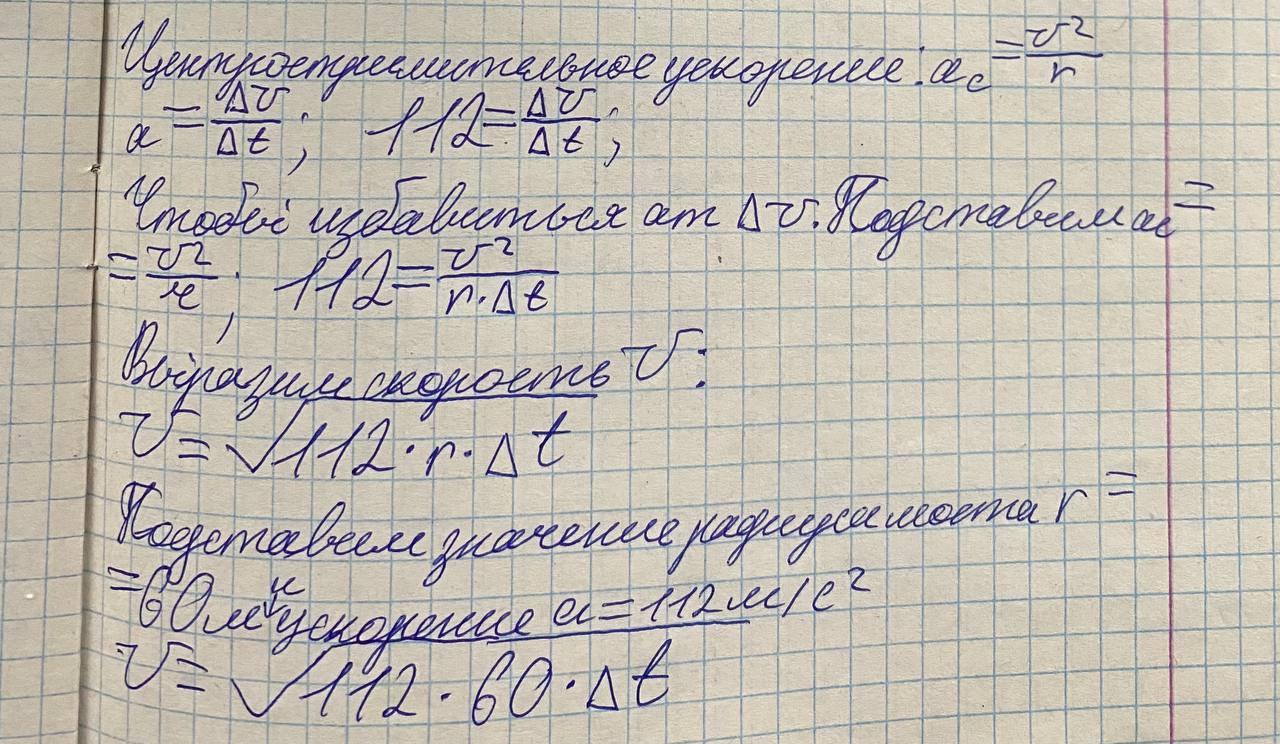 Центростримительное ускорение: a_c = v²/r
a = Δv/Δt; 112 = Δv/Δt;
Чтобы избавиться от Δv. Подставим a_c =
= v²/r; 112 = v²/(r·Δt)
Выразим скорость v:
v = √112·r·Δt
Подставим значение радиуса моста r =
= 60м и ускорение a = 112м/с²
v = √112·60·Δt